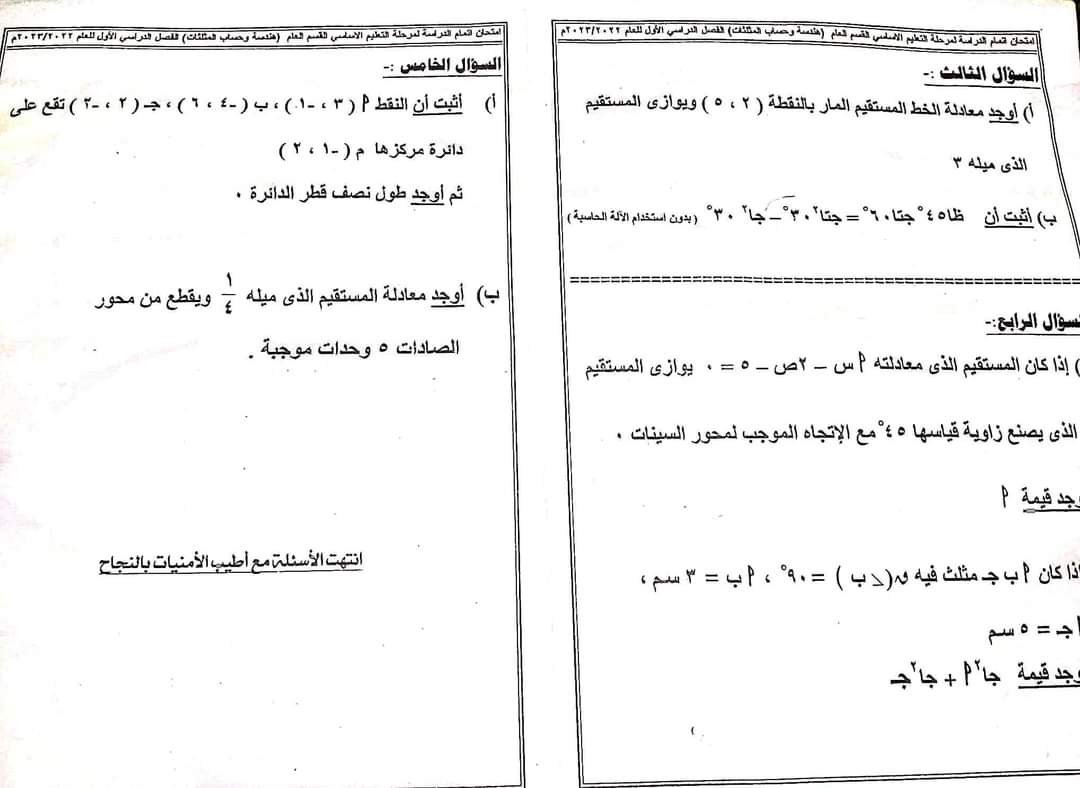 امتحان اتمام الدراسة لمرحلة التعليم الاساسي القسم العام (هندسة وحساب المثلثات) الفصل الدراسي الأول للعام ٢٠٢٣/٢٠٢٢م
السؤال الثالث :-
أ) أوجد معادلة الخط المستقيم المار بالنقطة ( ٢ ، ٥ ) ويوازى المستقيم
الذى ميله ٣
ب) أثبت أن ظا٤٥° جتا٦٠° = جتا²٣٠° – جا²٣٠° (بدون استخدام الآلة الحاسبة)
================================
لسؤال الرابع:-
) إذا كان المستقيم الذى معادلته ٩س – ٢ص – ٥ = ٠ يوازى المستقيم
الذى يصنع زاوية قياسها ٤٥° مع الإتجاه الموجب لمحور السينات ٠
وجد قيمة ٩
ذا كان ٩ ب جـ مثلث فيه ق(ﮯ ب ) = ٩٠° ، ٩ ب = ٣ سم ،
٩جـ = ٥ سم
وجد قيمة جا²٩ + جا²جـ
امتحان اتمام الدراسة لمرحلة التعليم الاساسي القسم العام (هندسة وحساب المثلثات) الفصل الدراسي الأول للعام ٢٠٢٣/٢٠٢٢م
السؤال الخامس :-
أ) أثبت أن النقط ٩ ( ٣ ، -١ ) ، ب ( -٤ ، ٦ ) ، جـ ( ٢ ، -٢ ) تقع على
دائرة مركزها م ( -١ ، ٢ )
ثم أوجد طول نصف قطر الدائرة ٠
ب) أوجد معادلة المستقيم الذى ميله ١/٤ ويقطع من محور
الصادات ٥ وحدات موجبة .
انتهت الأسئلة مع أطيب الأمنيات بالنجاح